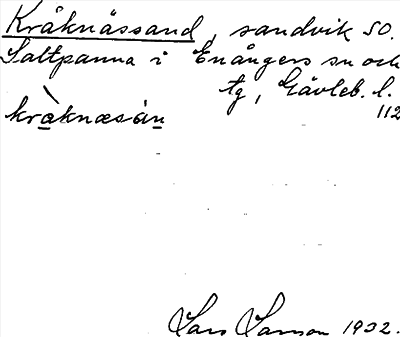 Kråknässand, sandvik SO.
Saltpanna i Enångers sn och
tg, Gävleb. l.
112
kràknæsàn
Lars Larsson 1932.